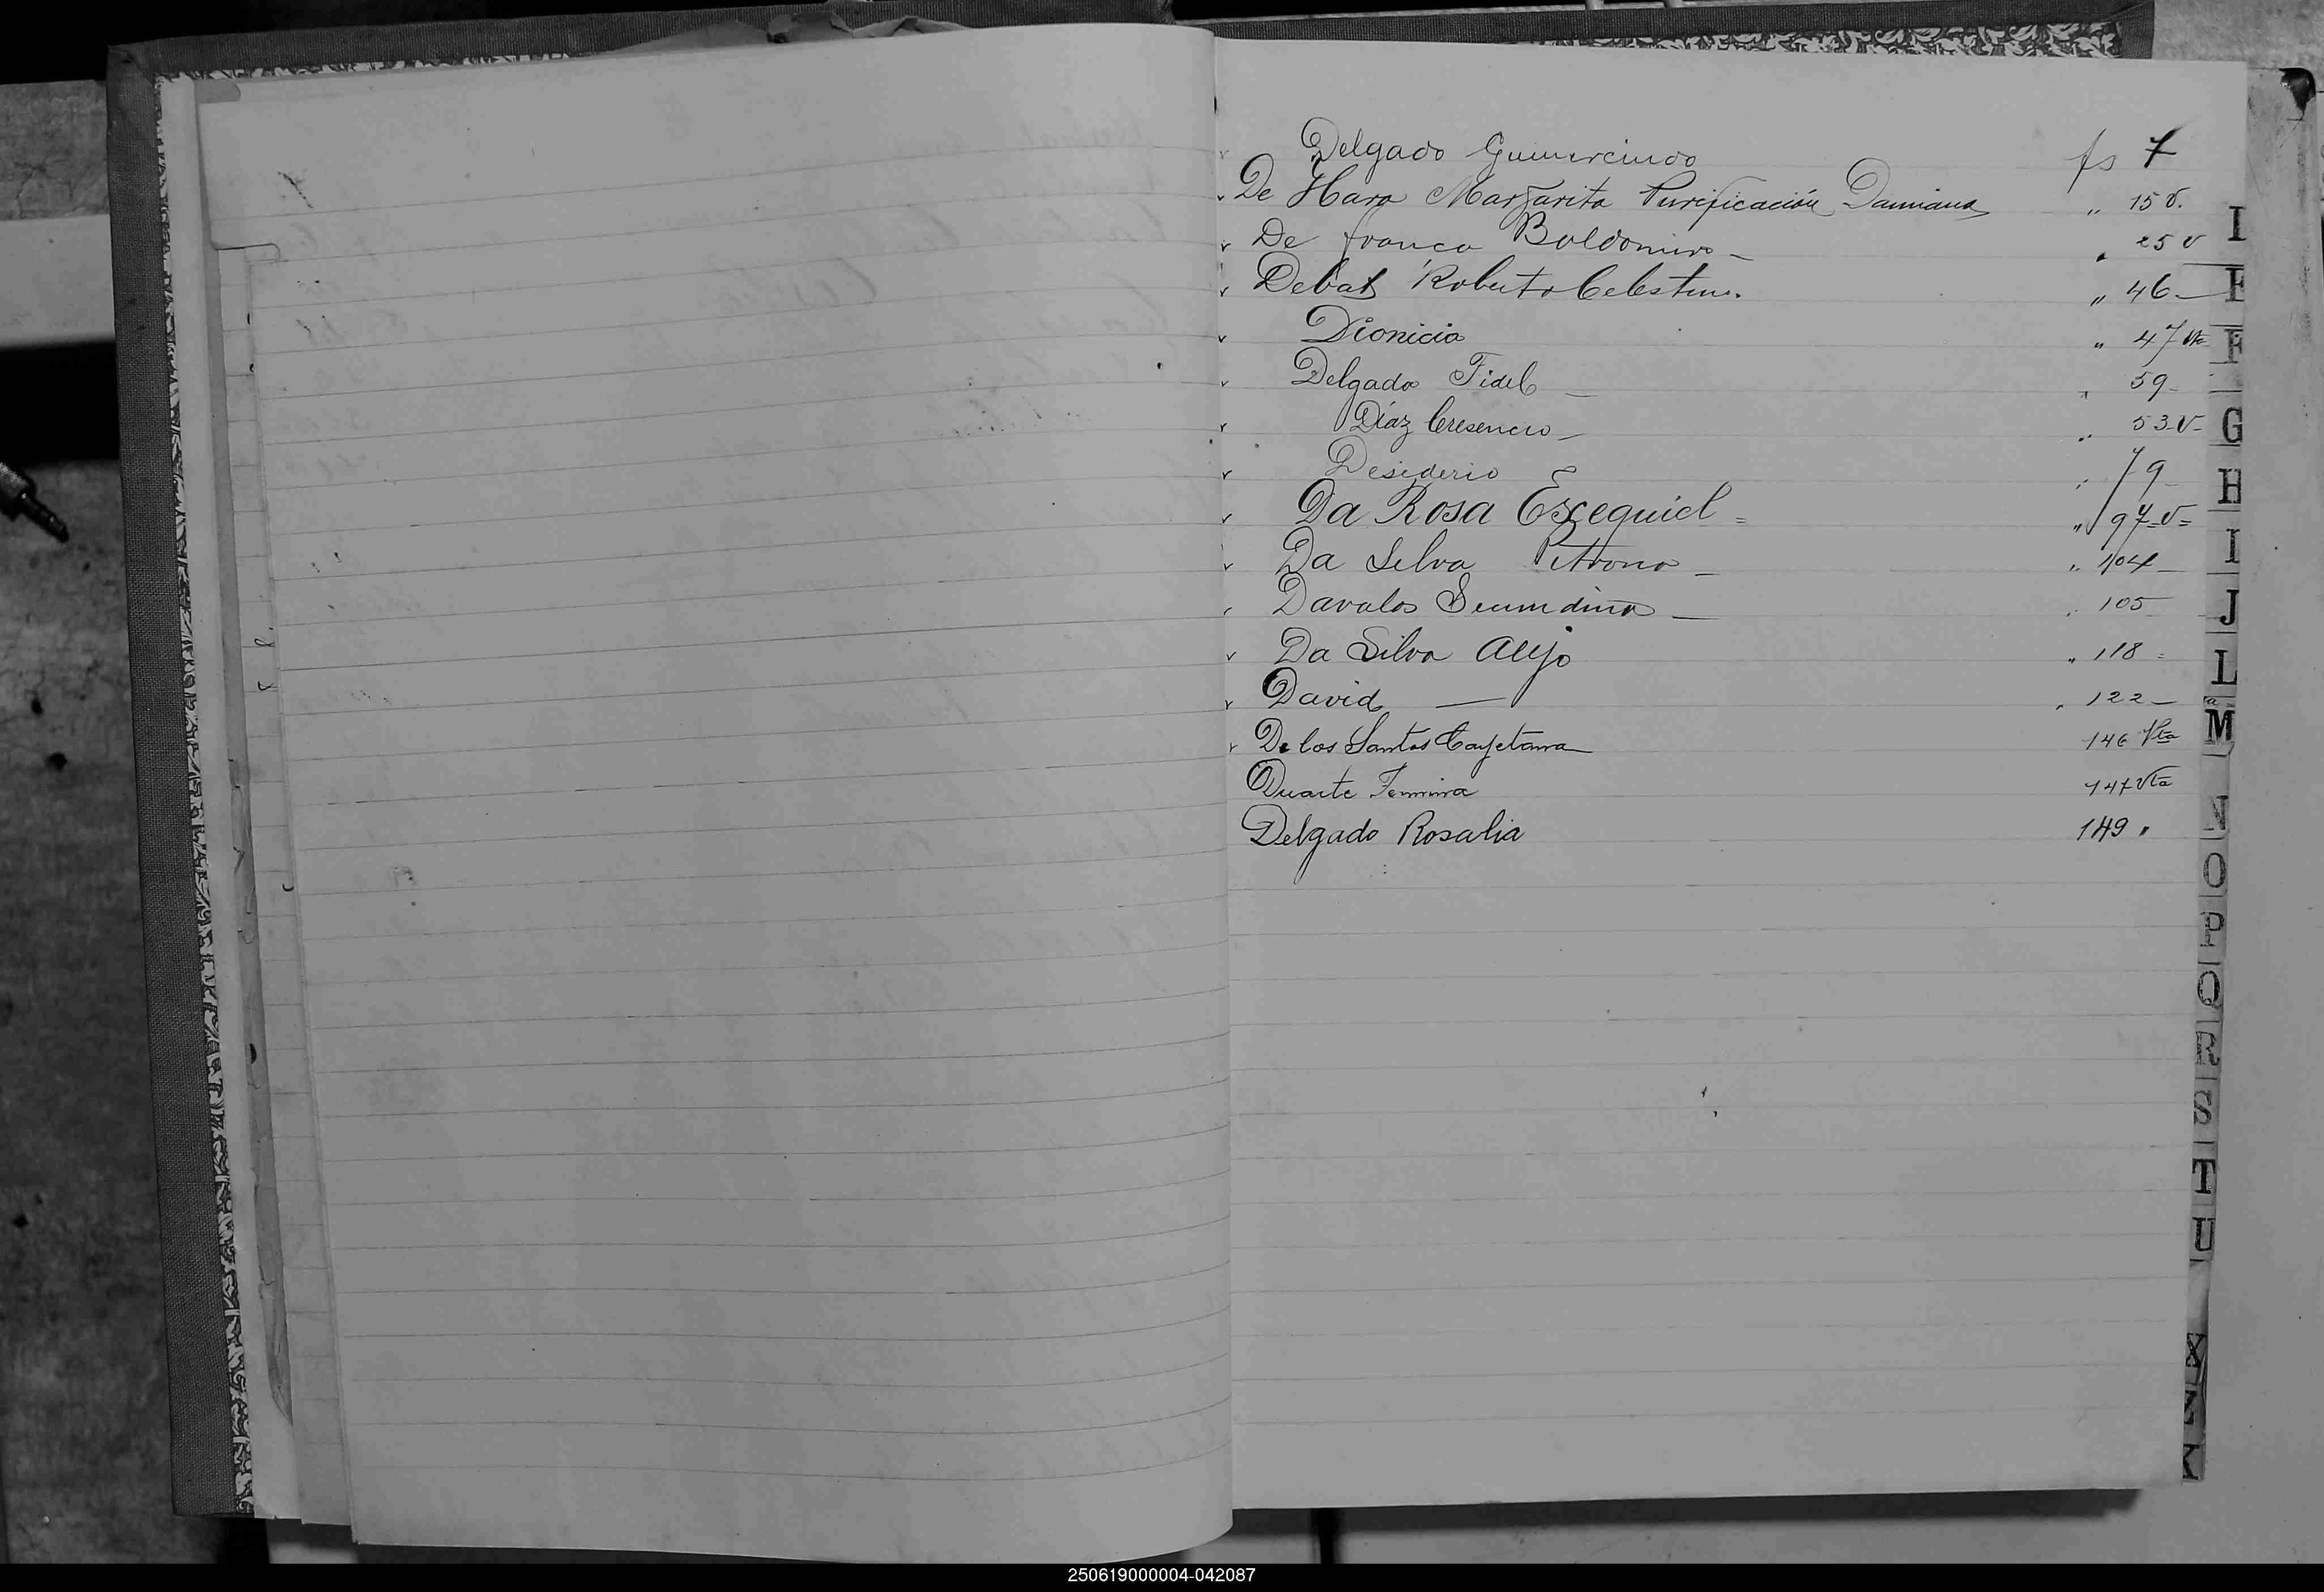 Delgado Gumercindo fs 7
De Haro Margarita Purificación Damiana " 15 v.
De franca Baldomiro - " 25 v
Debat Roberto Celestino. " 46 -
Dionicio " 47 vta
Delgado Fidel - " 59 -
Díaz Cresencio - " 53 v -
Desiderio " 79
Da Rosa Exequiel = " 97 = v =
Da Silva Petrona - " 104 -
Davalos Secundina - " 105
Da Silva Alejo " 118 =
David - " 122 -
De los Santos Cayetana 146 Vta
Duarte 147 Vta
Delgado Rosalia 149 "
I
E
F
G
H
I
J
L
M
N
O
P
Q
R
S
T
U
X
250619000004-042087